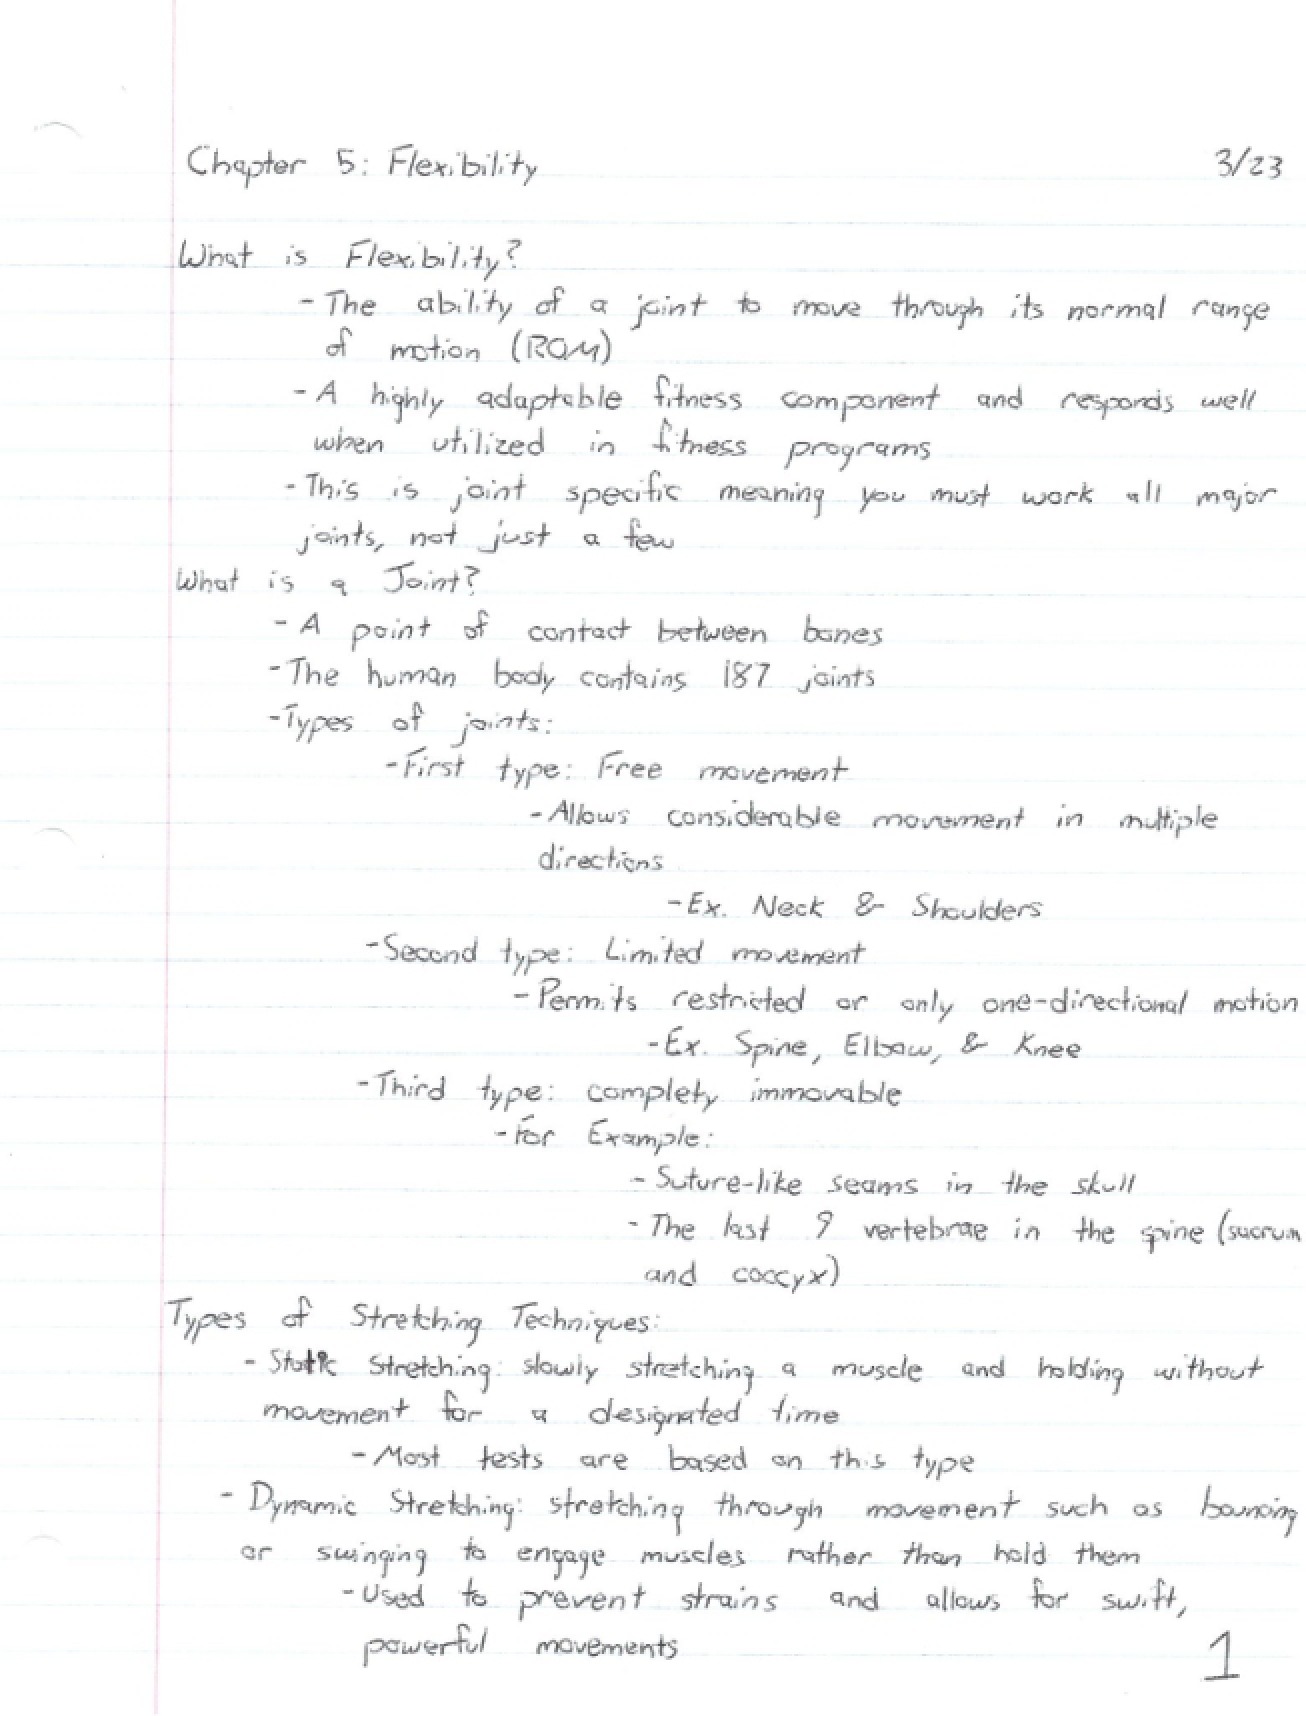 Chapter 5: Flexibility 3/23
What is Flexibility?
- The ability of a joint to move through its normal range
of motion (ROM)
- A highly adaptable fitness component and responds well
when utilized in fitness programs
- This is joint specific meaning you must work all major
joints, not just a few
What is a Joint?
- A point of contact between bones
- The human body contains 187 joints
- Types of joints:
- First type: Free movement
- Allows considerable movement in multiple
directions
- Ex. Neck & Shoulders
- Second type: Limited movement
- Permits restricted or only one-directional motion
- Ex. Spine, Elbow, & Knee
- Third type: complety immovable
- For Example:
- Suture-like seams in the skull
- The last 9 vertebrae in the spine (sacrum
and coccyx)
Types of Stretching Techniques:
- Static Stretching: slowly stretching a muscle and holding without
movement for a designated time
- Most tests are based on this type
- Dynamic Stretching: stretching through movement such as bouncing
or swinging to engage muscles rather than hold them
- Used to prevent strains and allows for swift,
powerful movements
1